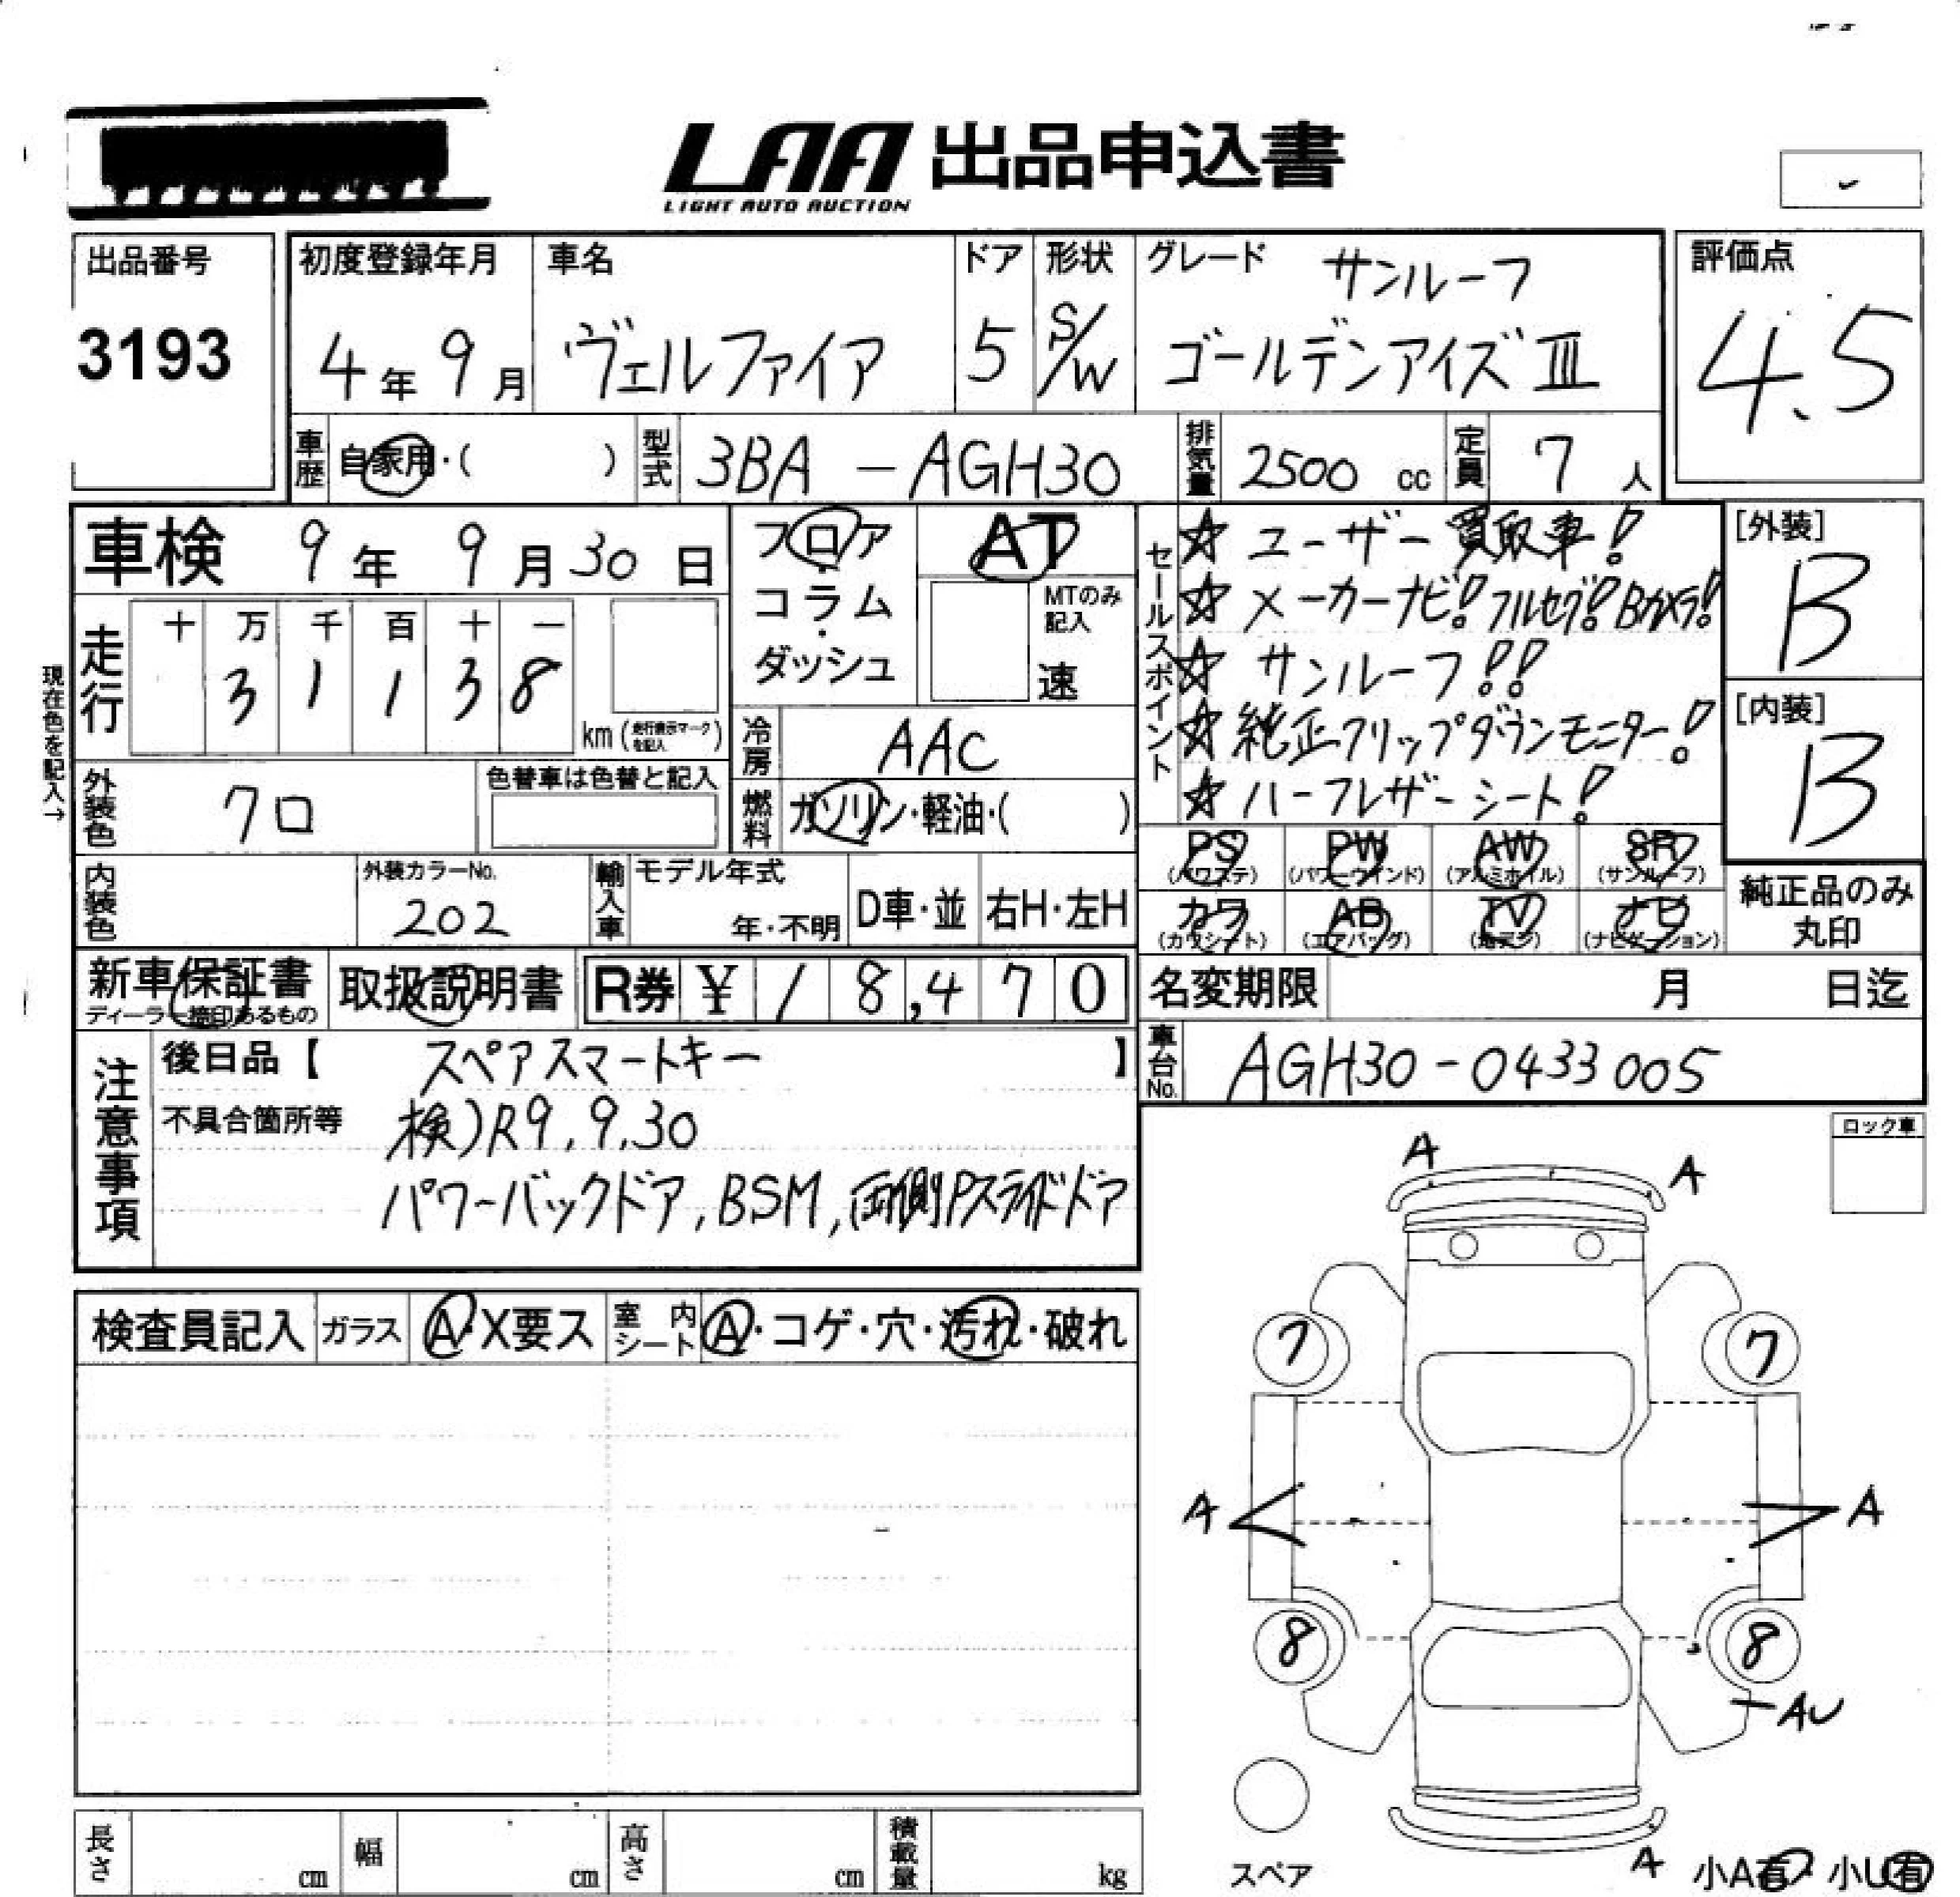 LAA 出品申込書
LIGHT AUTO AUCTION
出品番号
3193
初度登録年月
4年 9月
車名
ヴェルファイア
ドア
5
形状
S/W
グレード サンルーフ
ゴールデンアイズⅢ
評価点
4.5
車歴 自家用・( )
型式 3BA - AGH30
排気量 2500 cc
定員 7 人
車検 9年 9月 30日
フロア
コラム
・
ダッシュ
AT
MTのみ
記入
速
セールスポイント
☆ ユーザー買取車!
☆ メーカーナビ! フルセグ! Bカメラ!
☆ サンルーフ!!
☆ 純正フリップダウンモニター!
☆ ハーフレザーシート!
[外装]
B
[内装]
B
現在色を記入→
走行
十 万 千 百 十 一
3 1 1 3 8
km (走行表示マークを記入)
冷房 AAC
外装色 クロ
色替車は色替と記入
燃料 ガソリン・軽油・( )
PS (パワステ) PW (パワーウインド) AW (アルミホイル) SR (サンルーフ)
カワ (カワシート) AB (エアバッグ) TV (地デジ) ナビ (ナビゲーション)
純正品のみ
丸印
内装色
外装カラーNo.
202
輸入車
モデル年式
年・不明
D車・並
右H・左H
新車保証書
ディーラー捺印あるもの
取扱説明書
R券 ¥ 18,470
名変期限 月 日迄
車台No. AGH30-0433005
注意事項
後日品【 スペアスマートキー 】
不具合箇所等 検)R9.9.30
パワーバックドア, BSM, 両側Pスライドドア
ロック車
A
A
検査員記入
ガラス A・X要ス
室内シート A・コゲ・穴・汚れ・破れ
7
7
A
A
8
8
AU
スペア
A
小A有・小U有
長さ cm
幅 cm
高さ cm
積載量 kg